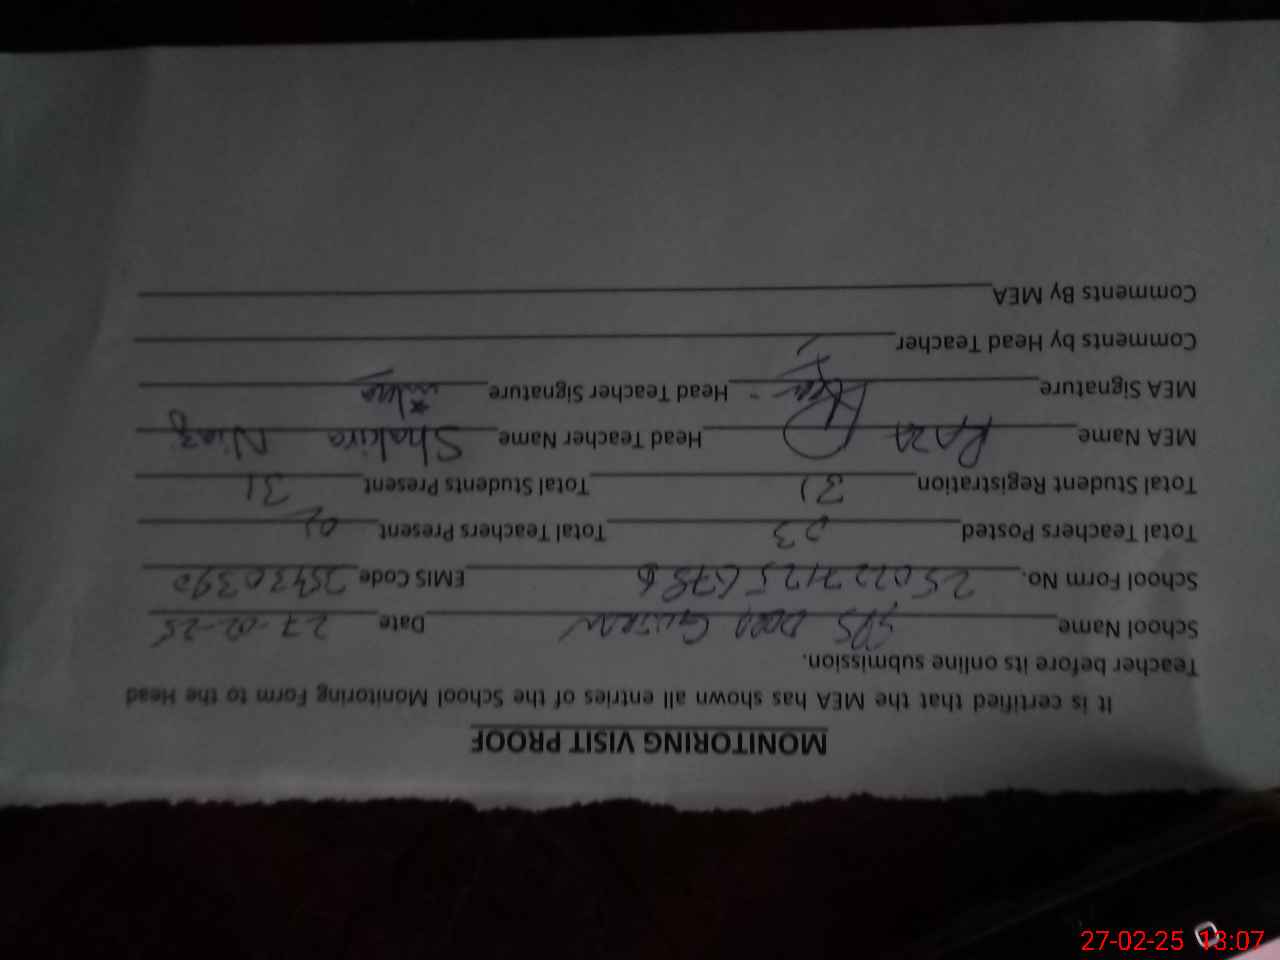 MONITORING VISIT PROOF
It is certified that the MEA has shown all entries of the School Monitoring Form to the Head
Teacher before its online submission.
School Name GPS Date 27-02-25
School Form No. EMIS Code
Total Teachers Posted 03 Total Teachers Present 02
Total Student Registration 31 Total Students Present 31
MEA Name RAZA Head Teacher Name Shakira Niaz
MEA Signature Head Teacher Signature
Comments by Head Teacher
Comments By MEA
27-02-25 13:07